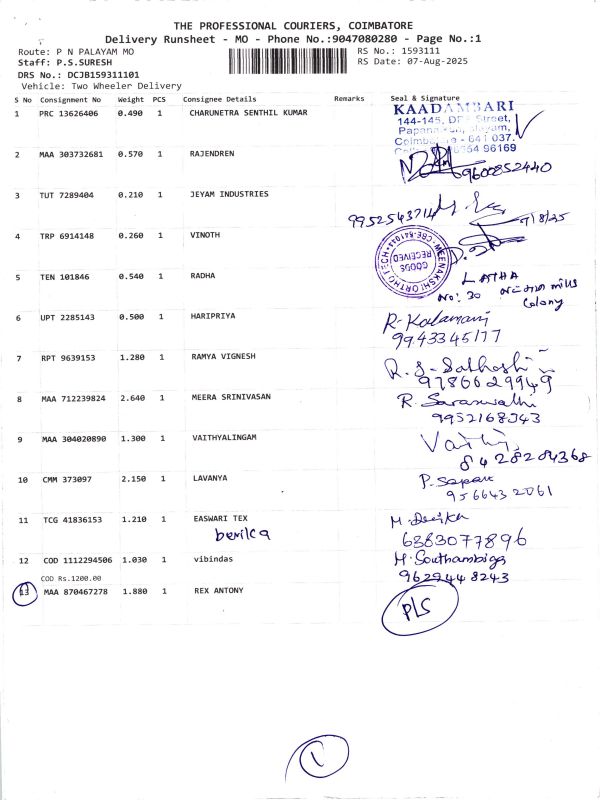 THE PROFESSIONAL COURIERS, COIMBATORE
Delivery Runsheet - MO - Phone No.:9047080280 - Page No.:1
Route: P N PALAYAM MO
RS No.: 1593111
Staff: P.S.SURESH
RS Date: 07-Aug-2025
DRS No.: DCJB159311101
Vehicle: Two Wheeler Delivery
S No Consignment No Weight PCS Consignee Details Remarks Seal & Signature
1 PRC 13626406 0.490 1 CHARUNETRA SENTHIL KUMAR
KAADAMBARI
144-145, Street,
641 037.
96169
2 MAA 303732681 0.570 1 RAJENDREN
9600852440
3 TUT 7289404 0.210 1 JEYAM INDUSTRIES
9952543714
7/8/25
4 TRP 6914148 0.260 1 VINOTH
MEENAKSHI ORTHO TECH CBE-641044
GOODS RECEIVED
5 TEN 101846 0.540 1 RADHA
LATHA
No: 30 mills
Colony
6 UPT 2285143 0.500 1 HARIPRIYA
R-Kalamani
9943345177
7 RPT 9639153 1.280 1 RAMYA VIGNESH
9786629949
8 MAA 712239824 2.640 1 MEERA SRINIVASAN
R. Saraswathi
9952168343
9 MAA 304020890 1.300 1 VAITHYALINGAM
8428204368
10 CMM 373097 2.150 1 LAVANYA
9566432061
11 TCG 41836153 1.210 1 EASWARI TEX
6383077896
12 COD 1112294506 1.030 1 vibindas
COD Rs.1200.00
9629448243
13 MAA 870467278 1.880 1 REX ANTONY
PLS
1